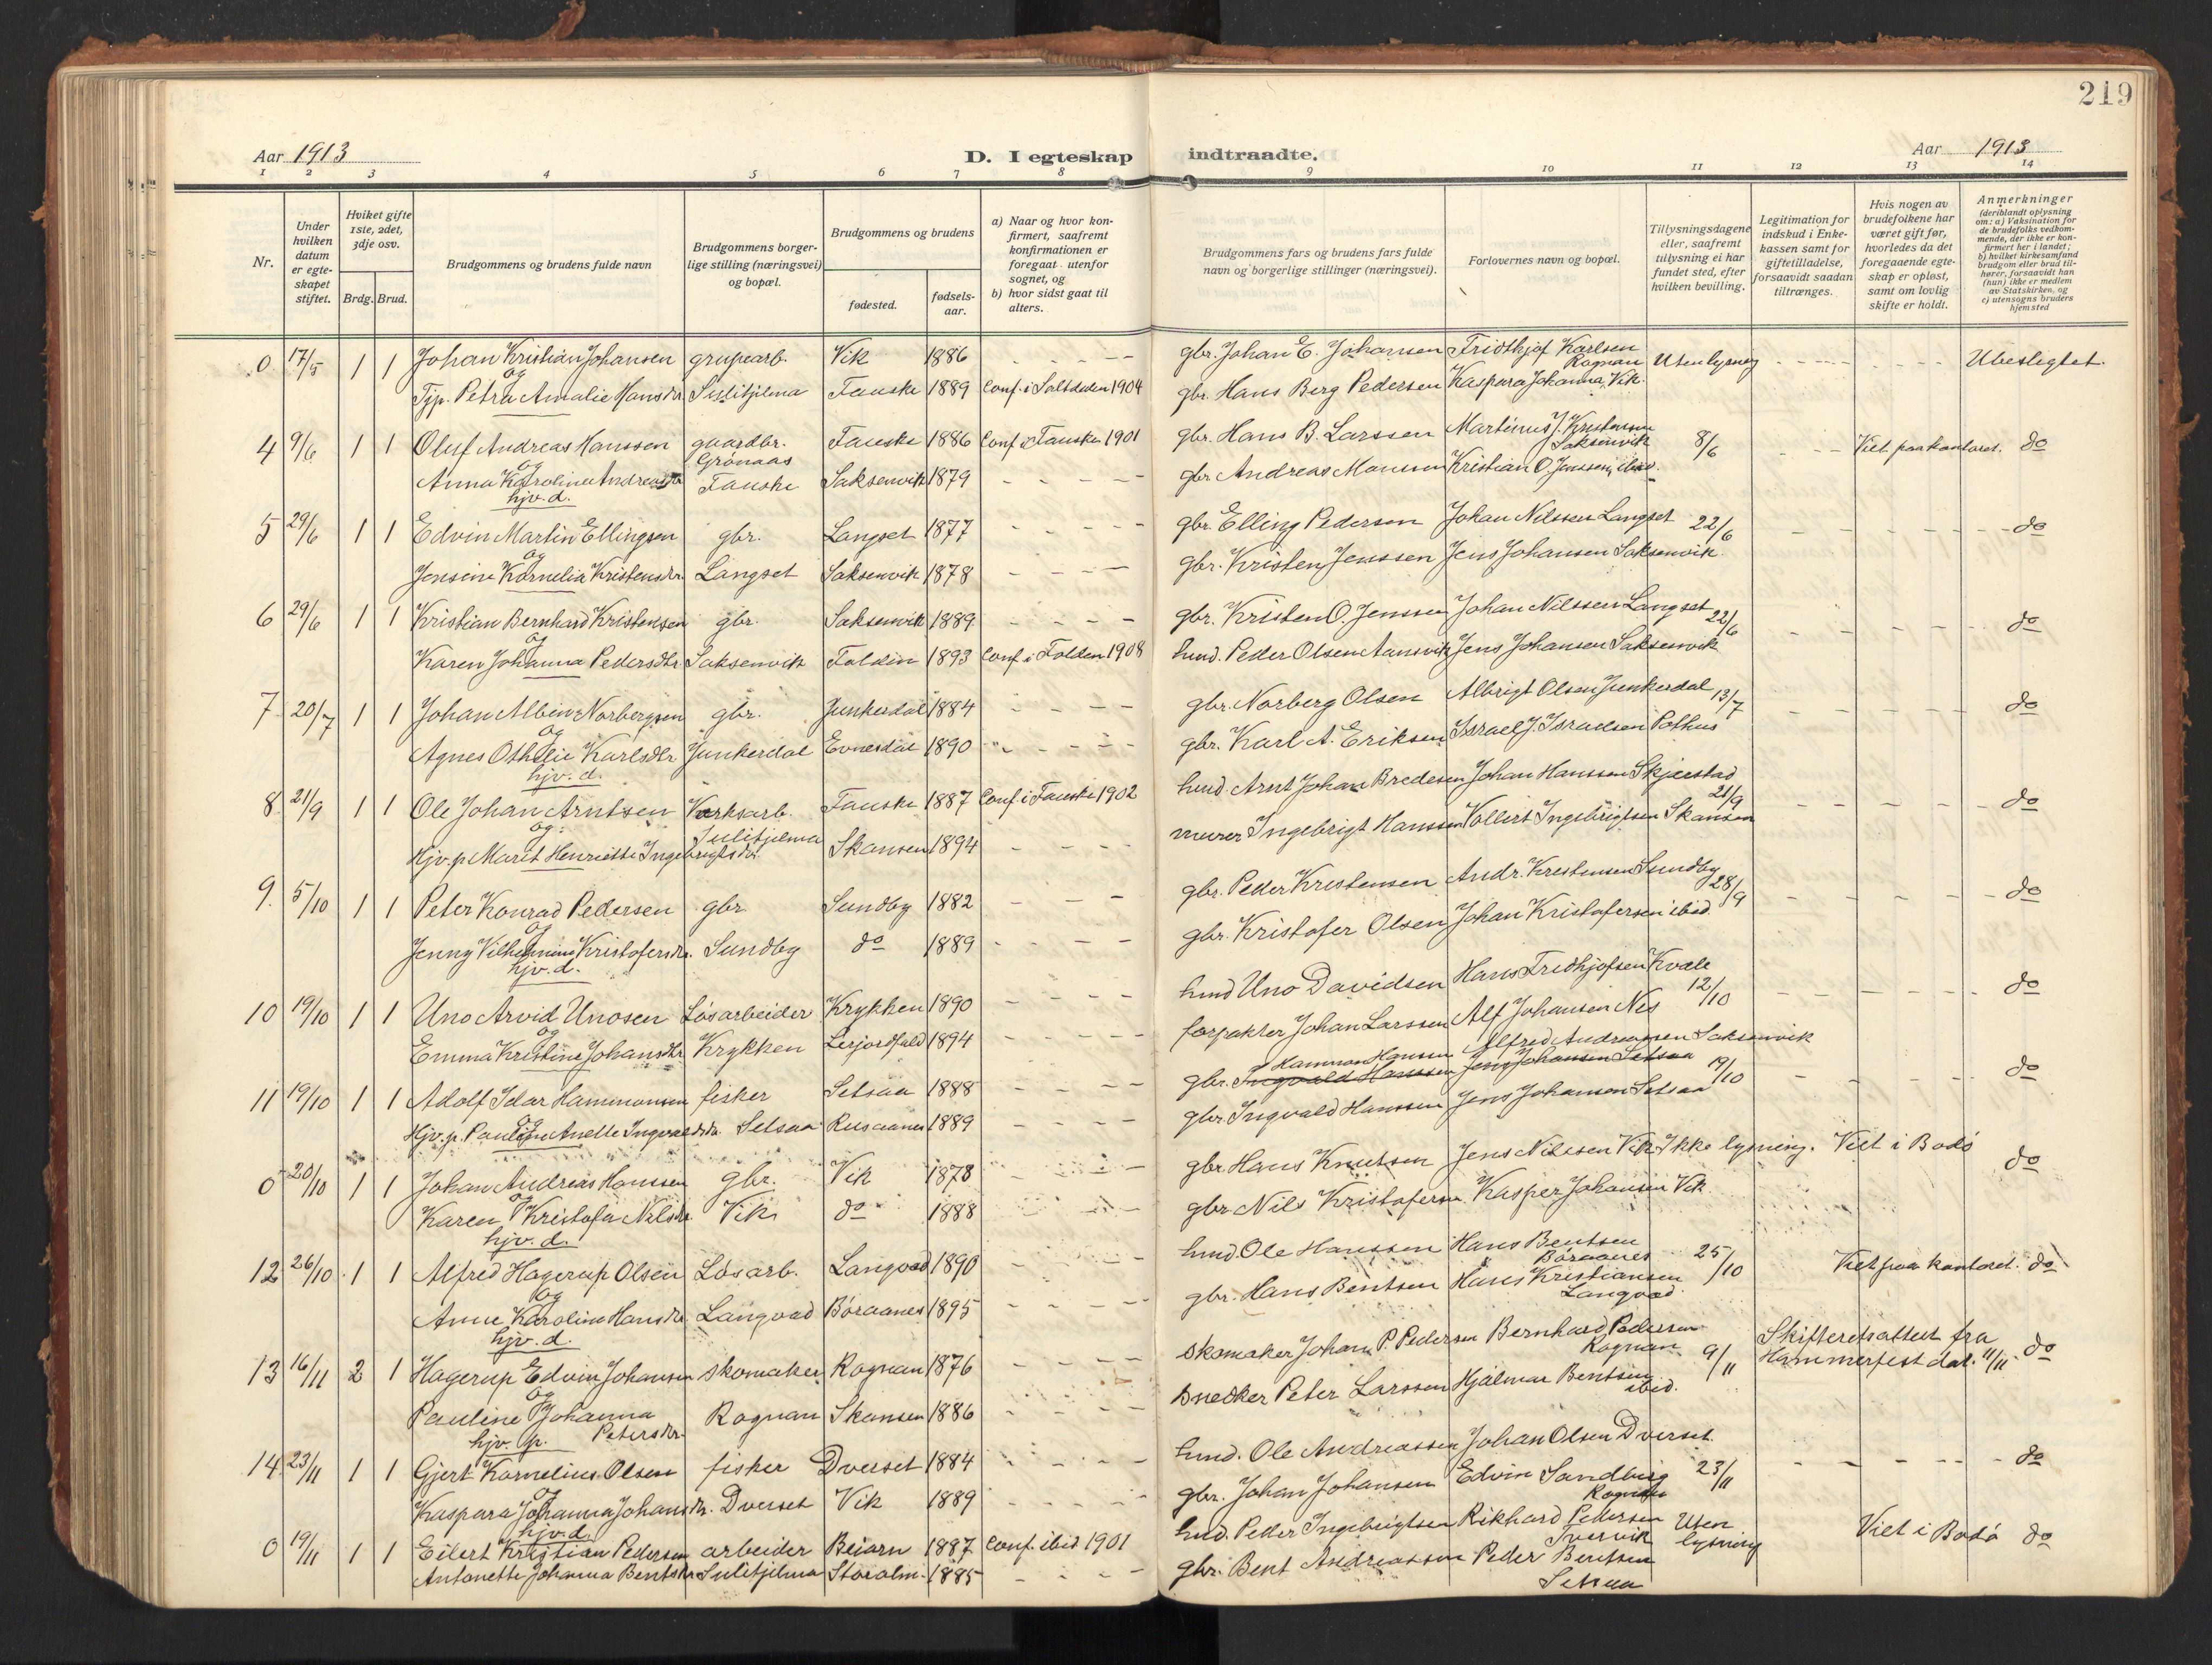 219
Aar 1913
D. I egteskap indtraadte.
Aar 1913
1 2 3 4 5 6 7 8 9 10 11 12 13 14
Nr.
Under hvilken datum er egteskapet stiftet.
Hviket gifte 1ste, 2det, 3dje osv.
Brdg. Brud.
Brudgommens og brudens fulde navn
Brudgommens borgerlige stilling (næringsvei) og bopæl.
Brudgommens og brudens
fødested.
fødselsaar.
a) Naar og hvor konfirmert, saafremt konfirmationen er foregaat utenfor sognet, og
b) hvor sidst gaat til alters.
Brudgommens fars og brudens fars fulde navn og borgerlige stillinger (næringsvei).
Forlovernes navn og bopæl.
Tillysningsdagene eller, saafremt tillysning ei har fundet sted, efter hvilken bevilling.
Legitimation for indskud i Enkekassen samt for giftetilladelse, forsaavidt saadan tiltrænges.
Hvis nogen av brudefolkene har været gift før, hvorledes da det foregaaende egteskap er opløst, samt om lovlig skifte er holdt.
Anmerkninger
(deriblandt oplysning om: a) Vaksination for de brudefolks vedkommende, der ikke er konfirmert her i landet; b) hvilket kirkesamfund brudgom eller brud tilhører, forsaavidt han (hun) ikke er medlem av Statskirken, og c) utensogns bruders hjemsted
0 17/5 1 1 Johan Kristian Johansen grupearb. Vik 1886 gbr. Johan E. Johansen Fridthjof Karlsen Rognan Uten lysning Ubeslegtet.
og
Tjp. Petra Amalie Hansdtr. Sulitjelma Fauske 1889 Conf. i Saltdalen 1904 gbr. Hans Berg Pedersen Kaspara Johanna, Vik.
4 9/6 1 1 Oluf Andreas Hanssen gaardbr. Grønaas Fauske 1886 Conf. i Fauske 1901 gbr. Hans B. Larssen Martinus J. Kristensen Saksenvik 8/6 Viet paa kontoret. do
og
Anna Karolina Andreasdtr. Fauske Saksenvik 1879 gbr. Andreas Monssen Kristian O. Jenssen, ibid.
hjv. d.
5 29/6 1 1 Edvin Martin Ellingsen gbr. Langset 1877 gbr. Elling Pedersen Johan Nilssen Langset 22/6 do
og
Jensine Kornelia Kristensdtr. Langset Saksenvik 1878 gbr. Kristen Jenssen Jens Johansen Saksenvik
6 29/6 1 1 Kristian Bernhard Kristensen gbr. Saksenvik 1889 gbr. Kristen O. Jenssen Johan Nilssen Langset 22/6 do
og
Karen Johanna Pedersdtr. Saksenvik Folden 1893 Conf. i Folden 1908 hmd. Peder Olsen Aansvik Jens Johansen Saksenvik
7 20/7 1 1 Johan Albin Norbergsen gbr. Junkerdal 1884 gbr. Norberg Olsen Albrigt Olsen Junkerdal 13/7 do
og
Agnes Othelie Karlsdtr Junkerdal Evnesdal 1890 gbr. Karl A. Eriksen Israel J. Israelsen Pothus
hjv. d.
8 21/9 1 1 Ole Johan Arntsen Verksarb. Fauske 1887 Conf. i Fauske 1902 hmd. Arnt Johan Bredesen Johan Hanssen Skjerstad 21/9 do
og
Hjv. p. Marit Henriette Ingebrigtsdtr. Sulitjelma Skansen 1894 murer Ingebrigt Hanssen Vollert Ingebrigtsen Skansen
9. 5/10 1 1 Peter Konrad Pedersen gbr Sundby 1882 gbr. Peder Kristensen Andr. Kristensen Sundby 28/9 do
og
Jenny Vilhelmine Kristofersdtr. Sundby do 1889 gbr. Kristofer Olsen Johan Kristofersen ibid.
hjv. d.
10 19/10 1 1 Uno Arvid Unosen Løsarbeider Krykken 1890 hmd Uno Davidsen Hans Fridhjofsen Kvæle 12/10 do
og
Emma Kristine Johansdtr Krykken Lerjordfald 1894 forpakter Johan Larssen Alf Johansen Nes
Hammon Hanssen Alfred Andreassen Saksenvik
11 19/10 1 1 Adolf Idar Hammonsen fisker Setsaa 1888 gbr. Ingvald Hanssen Jens Johansen Setsaa 19/10 do
og
Hjv. p. Pauline Anette Ingvaldsdtr. Setsaa Rusaanes 1889 gbr Ingvald Hanssen Jens Johansen Setsaa
0 20/10 1 1 Johan Andreas Hanssen gbr. Vik 1878 gbr Hans Knutsen Jens Nilssen Vik Ikke lysning. Viet i Bodø do
og
Karen Kristofa Nilsdtr. Vik do 1888 gbr Nils Kristofersen Kasper Johansen Vik
hjv. d.
12 26/10 1 1 Alfred Hagerup Olsen Løsarb. Langvad 1890 hmd. Ole Hanssen Hans Bentsen Børaanes 25/10 Viet paa kontoret. do
og
Anne Karoline Hansdtr. Langvad Børaanes 1895 gbr. Hans Bentsen Hans Kristiansen Langvad.
hjv. d.
13 16/11 2 1 Hagerup Edvin Johansen skomaker Rognan 1876 skomaker Johan P. Pedersen Bernhard Pedersen Rognan 9/11 Skifteretsattest fra Hammerfest dat. 11/11. do
og
Pauline Johanna Petersdtr. Rognan Skansen 1886 snedker Peter Larssen Hjalmar Bentsen ibid.
hjv. p.
14 23/11 1 1 Gjert Kornelius Olsen fisker Dverset 1884 hmd. Ole Andreassen Johan Olsen Dverset. 23/11 do
og
Kaspara Johanna Johansdtr. Dverset Vik 1889 gbr. Johan Johansen Edvin Sandberg Rognan
hjv. d.
0 19/11 1 1 Eilert Kristian Pedersen arbeider Beiarn 1887 Conf. ibid 1901 hmd. Peder Ingebrigtsen Rikhard Pedersen Tverrvik Uten lysning Viet i Bodø do
Antonette Johanna Bentsdtr Sulitjelma Storalm. 1885 gbr. Bent Andreassen Peder Bentsen Setsaa